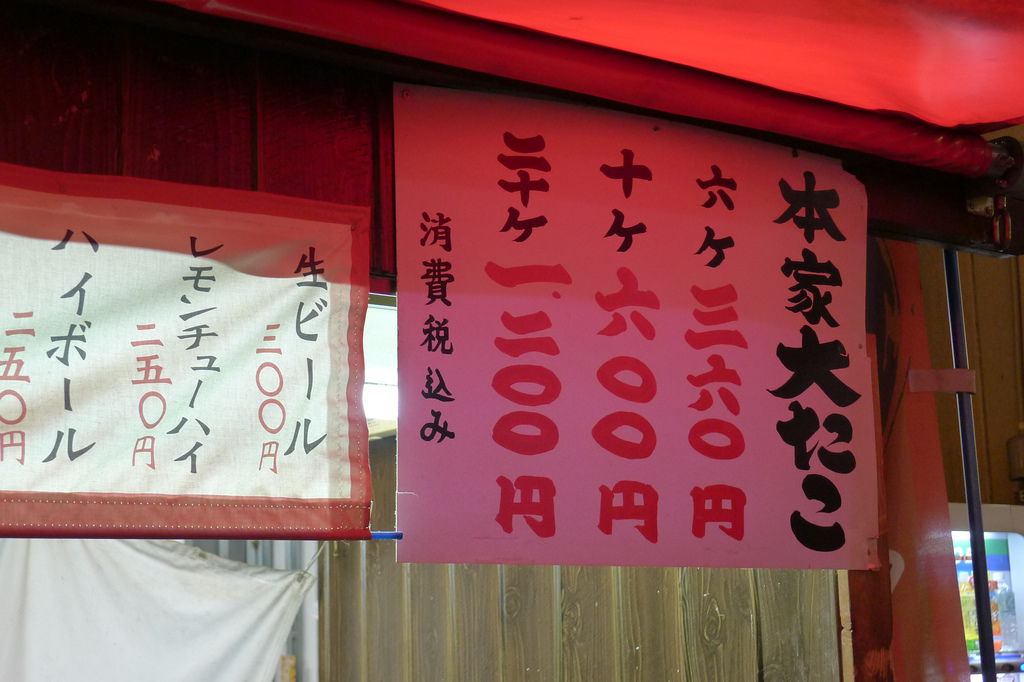 本家大たこ
六ヶ 三六〇円
十ヶ 六〇〇円
二十ヶ 一、二〇〇円
消費税込み
生ビール
三〇〇円
レモンチューハイ
二五〇円
ハイボール
二五〇円